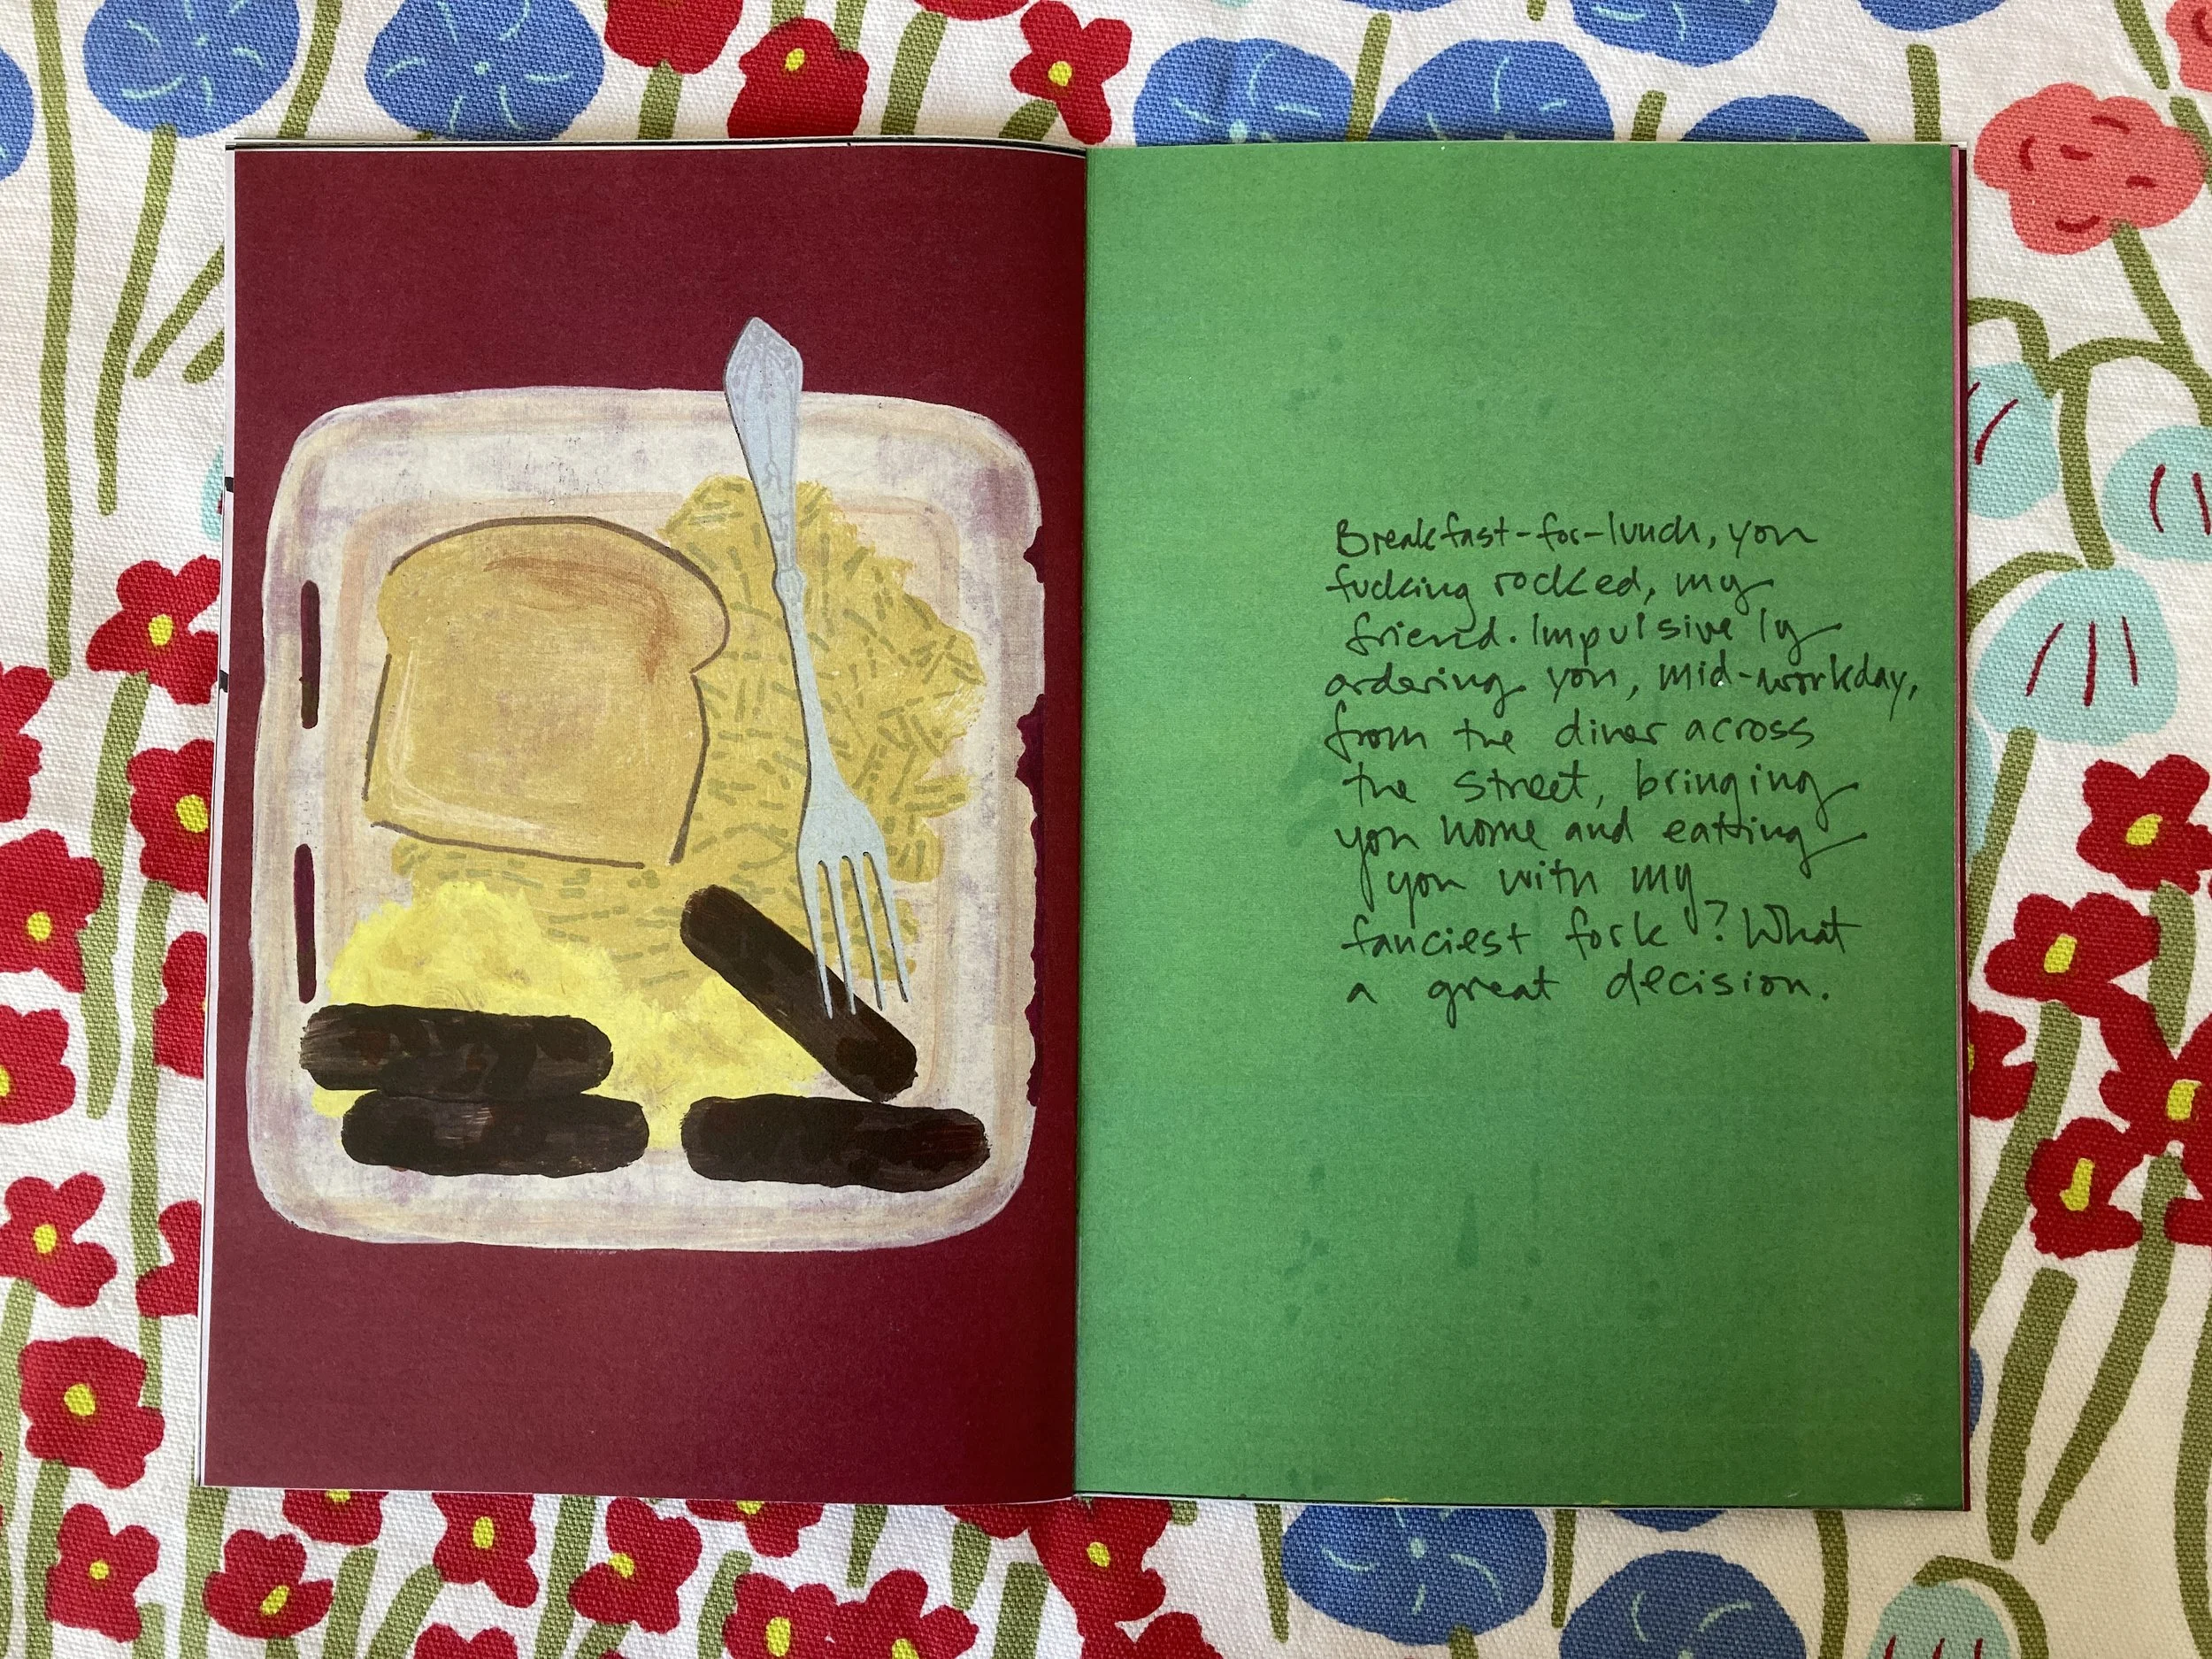 Breakfast-for-lunch, you
fucking rocked, my
friend. Impulsively
ordering you, mid-workday,
from the diner across
the street, bringing
you home and eating
you with my
fanciest fork? What
a great decision.